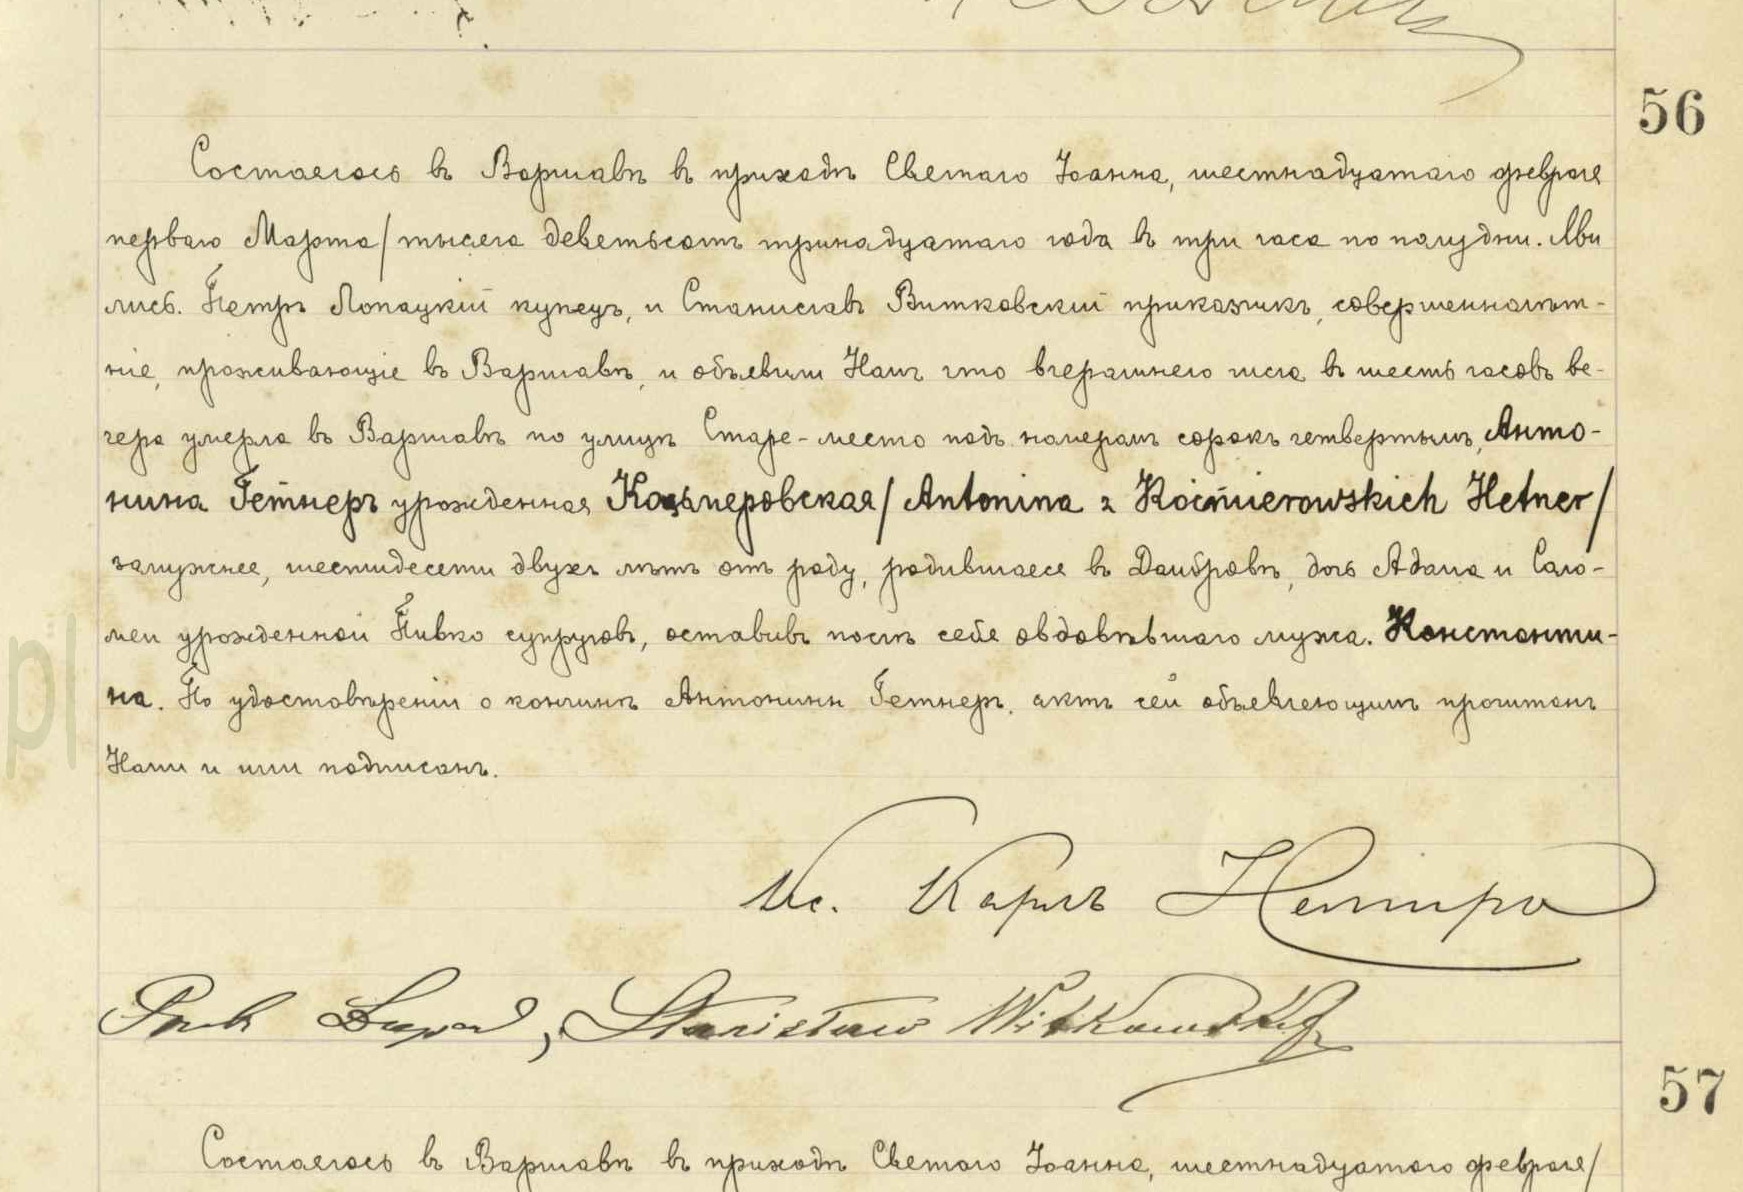 56
Состоялось въ Варшавѣ въ приходѣ Святаго Іоанна, шестнадцатаго февраля
перваго Марта/ тысяча девятьсотъ тринадцатаго года въ три часа по полудни. Яви
лись. Петръ Лопацкій купецъ, и Станиславъ Витковскій приказчикъ, совершеннолѣт-
ніе, проживающіе въ Варшавѣ, и объявили Намъ что вчерашняго числа въ шесть часовъ ве-
чера умерла въ Варшавѣ по улицѣ Старе-място подъ номеромъ сорокъ четвертымъ, Анто-
нина Гетнеръ урожденная Козьмеровская/ Antonina z Koźmierowskich Hetner/
замужняя, шестидесяти двухъ лѣтъ отъ роду, родившаяся въ Домбровѣ, дочь Адама и Сало-
меи урожденной Пивко супруговъ, оставивъ послѣ себя овдовѣвшаго мужа. Константи-
на. По удостовѣреніи о кончинѣ Антонины Гетнеръ. актъ сей объявляющимъ прочитанъ
Нами и ими подписанъ.
Кс. Карлъ
Stanisław Witkowski
57
Состоялось въ Варшавѣ въ приходѣ Святого Іоанна, шестнадцатого февраля/
pl